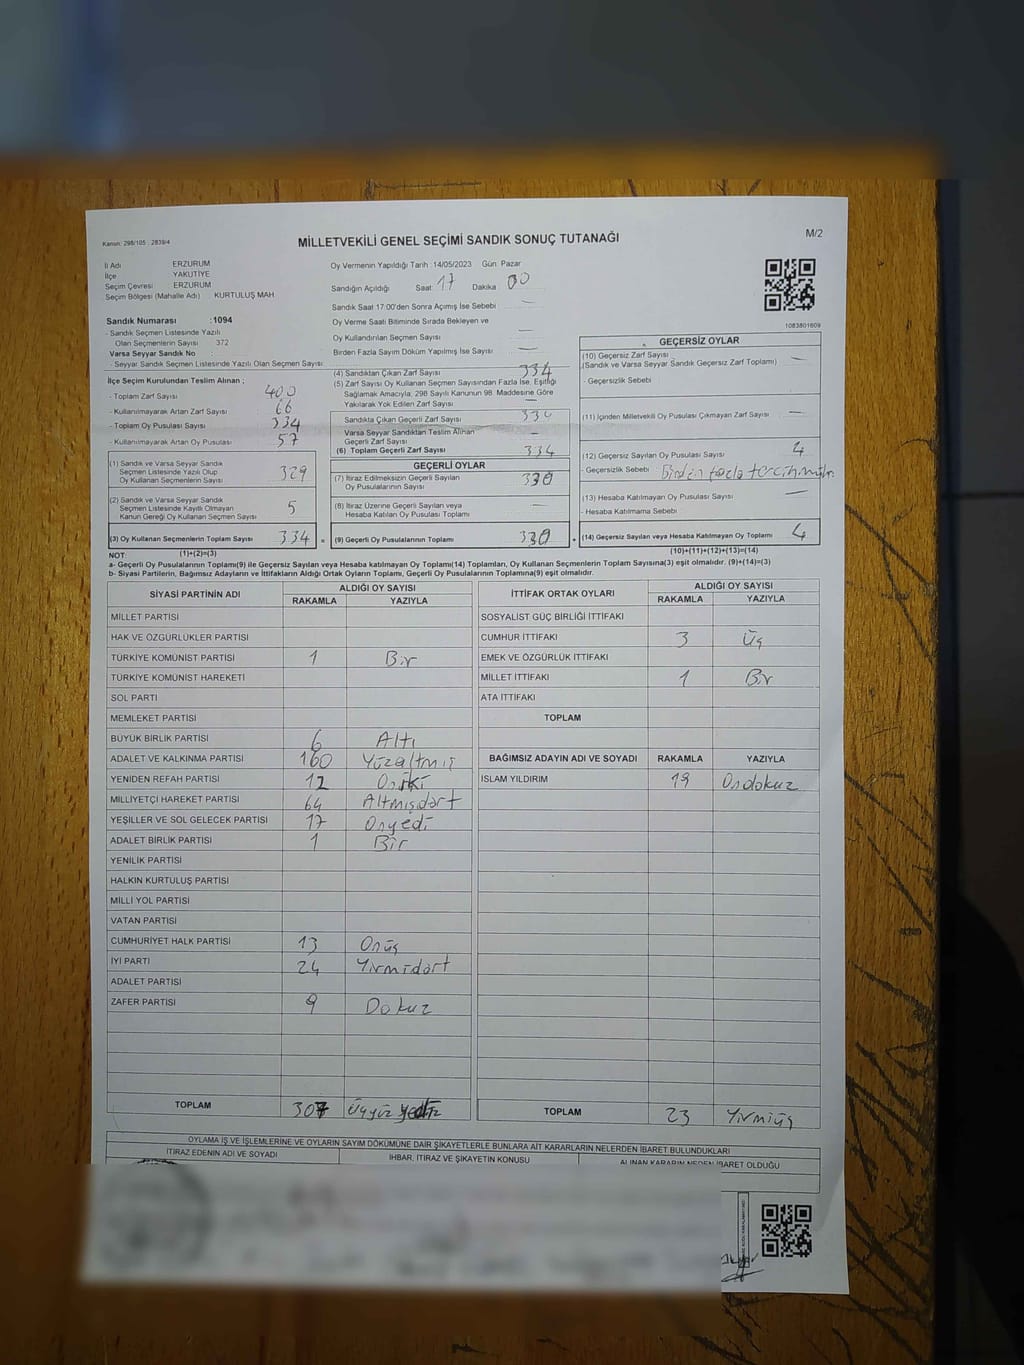 Kanun: 298/105 2839/4
MİLLETVEKİLİ GENEL SEÇİMİ SANDIK SONUÇ TUTANAĞI
M/2
İl Adı ERZURUM
İlçe YAKUTİYE
Seçim Çevresi ERZURUM
Seçim Bölgesi (Mahalle Adı) KURTULUŞ MAH
Sandık Numarası : 1094
- Sandık Seçmen Listesinde Yazılı
Olan Seçmenlerin Sayısı 372
Varsa Seyyar Sandık No :
- Seyyar Sandık Seçmen Listesinde Yazılı Olan Seçmen Sayısı
İlçe Seçim Kurulundan Teslim Alınan ;
- Toplam Zarf Sayısı 400
- Kullanılmayarak Artan Zarf Sayısı 66
- Toplam Oy Pusulası 334
- Kullanılmayarak Artan Oy Pusulası 57
(1) Sandık ve Varsa Seyyar Sandık
Seçmen Listesinde Yazılı Olup
Oy Kullanan Seçmenlerin Sayısı 329
(2) Sandık ve Varsa Seyyar Sandık
Seçmen Listesinde Kayıtlı Olmayan
Kanun Gereği Oy Kullanan Seçmen Sayısı 5
(3) Oy Kullanan Seçmenlerin Toplam Sayısı 334 =
Oy Vermenin Yapıldığı Tarih : 14/05/2023 Gün: Pazar
Sandığın Açıldığı Saat: 17 Dakika 00
Sandık Saat 17:00'den Sonra Açımış İse Sebebi : —
Oy Verme Saati Bitiminde Sırada Bekleyen ve
Oy Kullandırılan Seçmen Sayısı —
Birden Fazla Sayım Döküm Yapılmış İse Sayısı —
(4) Sandıktan Çıkan Zarf Sayısı 334
(5) Zarf Sayısı Oy Kullanan Seçmen Sayısından Fazla İse, Eşitliği
Sağlamak Amacıyla, 298 Sayılı Kanunun 98. Maddesine Göre
Yakılarak Yok Edilen Zarf Sayısı —
Sandıkta Çıkan Geçerli Zarf Sayısı
Varsa Seyyar Sandıktan Teslim Alınan
Geçerli Zarf Sayısı —
(6) Toplam Geçerli Zarf Sayısı 334
GEÇERLİ OYLAR
(7) İtiraz Edilmeksizin Geçerli Sayılan
Oy Pusulalarının Sayısı 330
(8) İtiraz Üzerine Geçerli Sayılan veya
Hesaba Katılan Oy Pusulası Toplamı —
(9) Geçerli Oy Pusulalarının Toplamı 330 +
1083801609
GEÇERSİZ OYLAR
(10) Geçersiz Zarf Sayısı —
(Sandık ve Varsa Seyyar Sandık Geçersiz Zarf Toplamı)
- Geçersizlik Sebebi
(11) İçinden Milletvekili Oy Pusulası Çıkmayan Zarf Sayısı —
(12) Geçersiz Sayılan Oy Pusulası Sayısı 4
- Geçersizlik Sebebi Birden fazla
(13) Hesaba Katılmayan Oy Pusulası Sayısı —
- Hesaba Katılmama Sebebi
(14) Geçersiz Sayılan veya Hesaba Katılmayan Oy Toplamı 4
NOT: (1)+(2)=(3) (10)+(11)+(12)+(13)=(14)
a- Geçerli Oy Pusulalarının Toplamı(9) ile Geçersiz Sayılan veya Hesaba katılmayan Oy Toplamı(14) Toplamları, Oy Kullanan Seçmenlerin Toplam Sayısına(3) eşit olmalıdır. (9)+(14)=(3)
b- Siyasi Partilerin, Bağımsız Adayların ve İttifakların Aldığı Ortak Oyların Toplamı, Geçerli Oy Pusulalarının Toplamına(9) eşit olmalıdır.
SİYASİ PARTİNİN ADI ALDIĞI OY SAYISI
RAKAMLA YAZIYLA
MİLLET PARTİSİ
HAK VE ÖZGÜRLÜKLER PARTİSİ
TÜRKİYE KOMÜNİST PARTİSİ 1 Bir
TÜRKİYE KOMÜNİST HAREKETİ
SOL PARTİ
MEMLEKET PARTİSİ
BÜYÜK BİRLİK PARTİSİ 6 Altı
ADALET VE KALKINMA PARTİSİ 160 Yüzaltmış
YENİDEN REFAH PARTİSİ 12 Oniki
MİLLİYETÇİ HAREKET PARTİSİ 64 Altmışdört
YEŞİLLER VE SOL GELECEK PARTİSİ 17 Onyedi
ADALET BİRLİK PARTİSİ 1 Bir
YENİLİK PARTİSİ
HALKIN KURTULUŞ PARTİSİ
MİLLİ YOL PARTİSİ
VATAN PARTİSİ
CUMHURİYET HALK PARTİSİ 13 Onüş
İYİ PARTİ 24 Yirmidört
ADALET PARTİSİ
ZAFER PARTİSİ 9 Dokuz
TOPLAM 307 Üçyüz
İTTİFAK ORTAK OYLARI ALDIĞI OY SAYISI
RAKAMLA YAZIYLA
SOSYALİST GÜÇ BİRLİĞİ İTTİFAKI
CUMHUR İTTİFAKI 3 Üç
EMEK VE ÖZGÜRLÜK İTTİFAKI
MİLLET İTTİFAKI 1 Bir
ATA İTTİFAKI
TOPLAM
BAĞIMSIZ ADAYIN ADI VE SOYADI RAKAMLA YAZIYLA
İSLAM YILDIRIM 19 Ondokuz
TOPLAM 23 Yirmiüş
OYLAMA İŞ VE İŞLEMLERİNE VE OYLARIN SAYIM DÖKÜMÜNE DAİR ŞİKAYETLERLE BUNLARA AİT KARARLARIN NELERDEN İBARET BULUNDUKLARI
İTİRAZ EDENİN ADI VE SOYADI İHBAR, İTİRAZ VE ŞİKAYETİN KONUSU ALINAN KARARIN NEDEN İBARET OLDUĞU